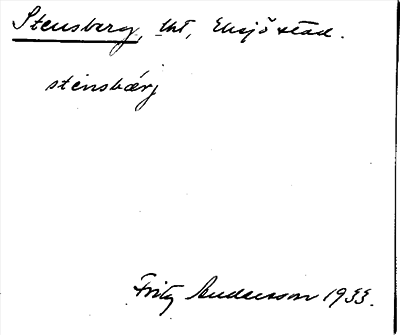 Stensberg, tht, Eksjö stad.
stensbærj
Fritz Andersson 1933.